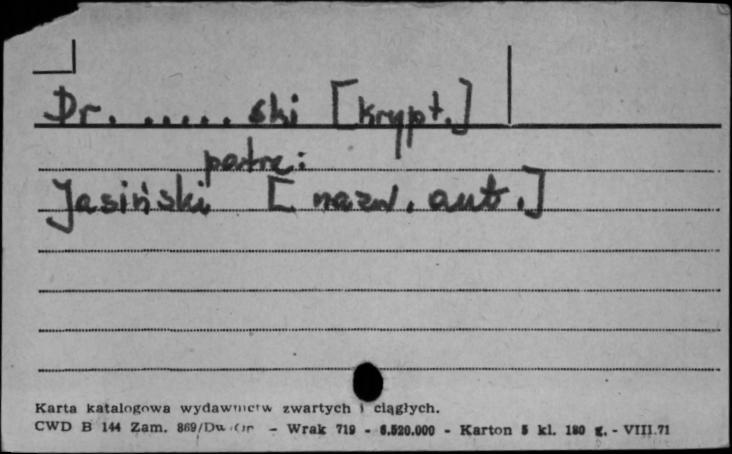 Dr. ...... ski [krypt.]
patrz:
Jasiński [nazw. aut.]
Karta katalogowa wydawnictw zwartych i ciągłych.
CWD B 144 Zam. 869/ - Wrak 719 - 6.520.000 - Karton 5 kl. 180 g. - VIII.71